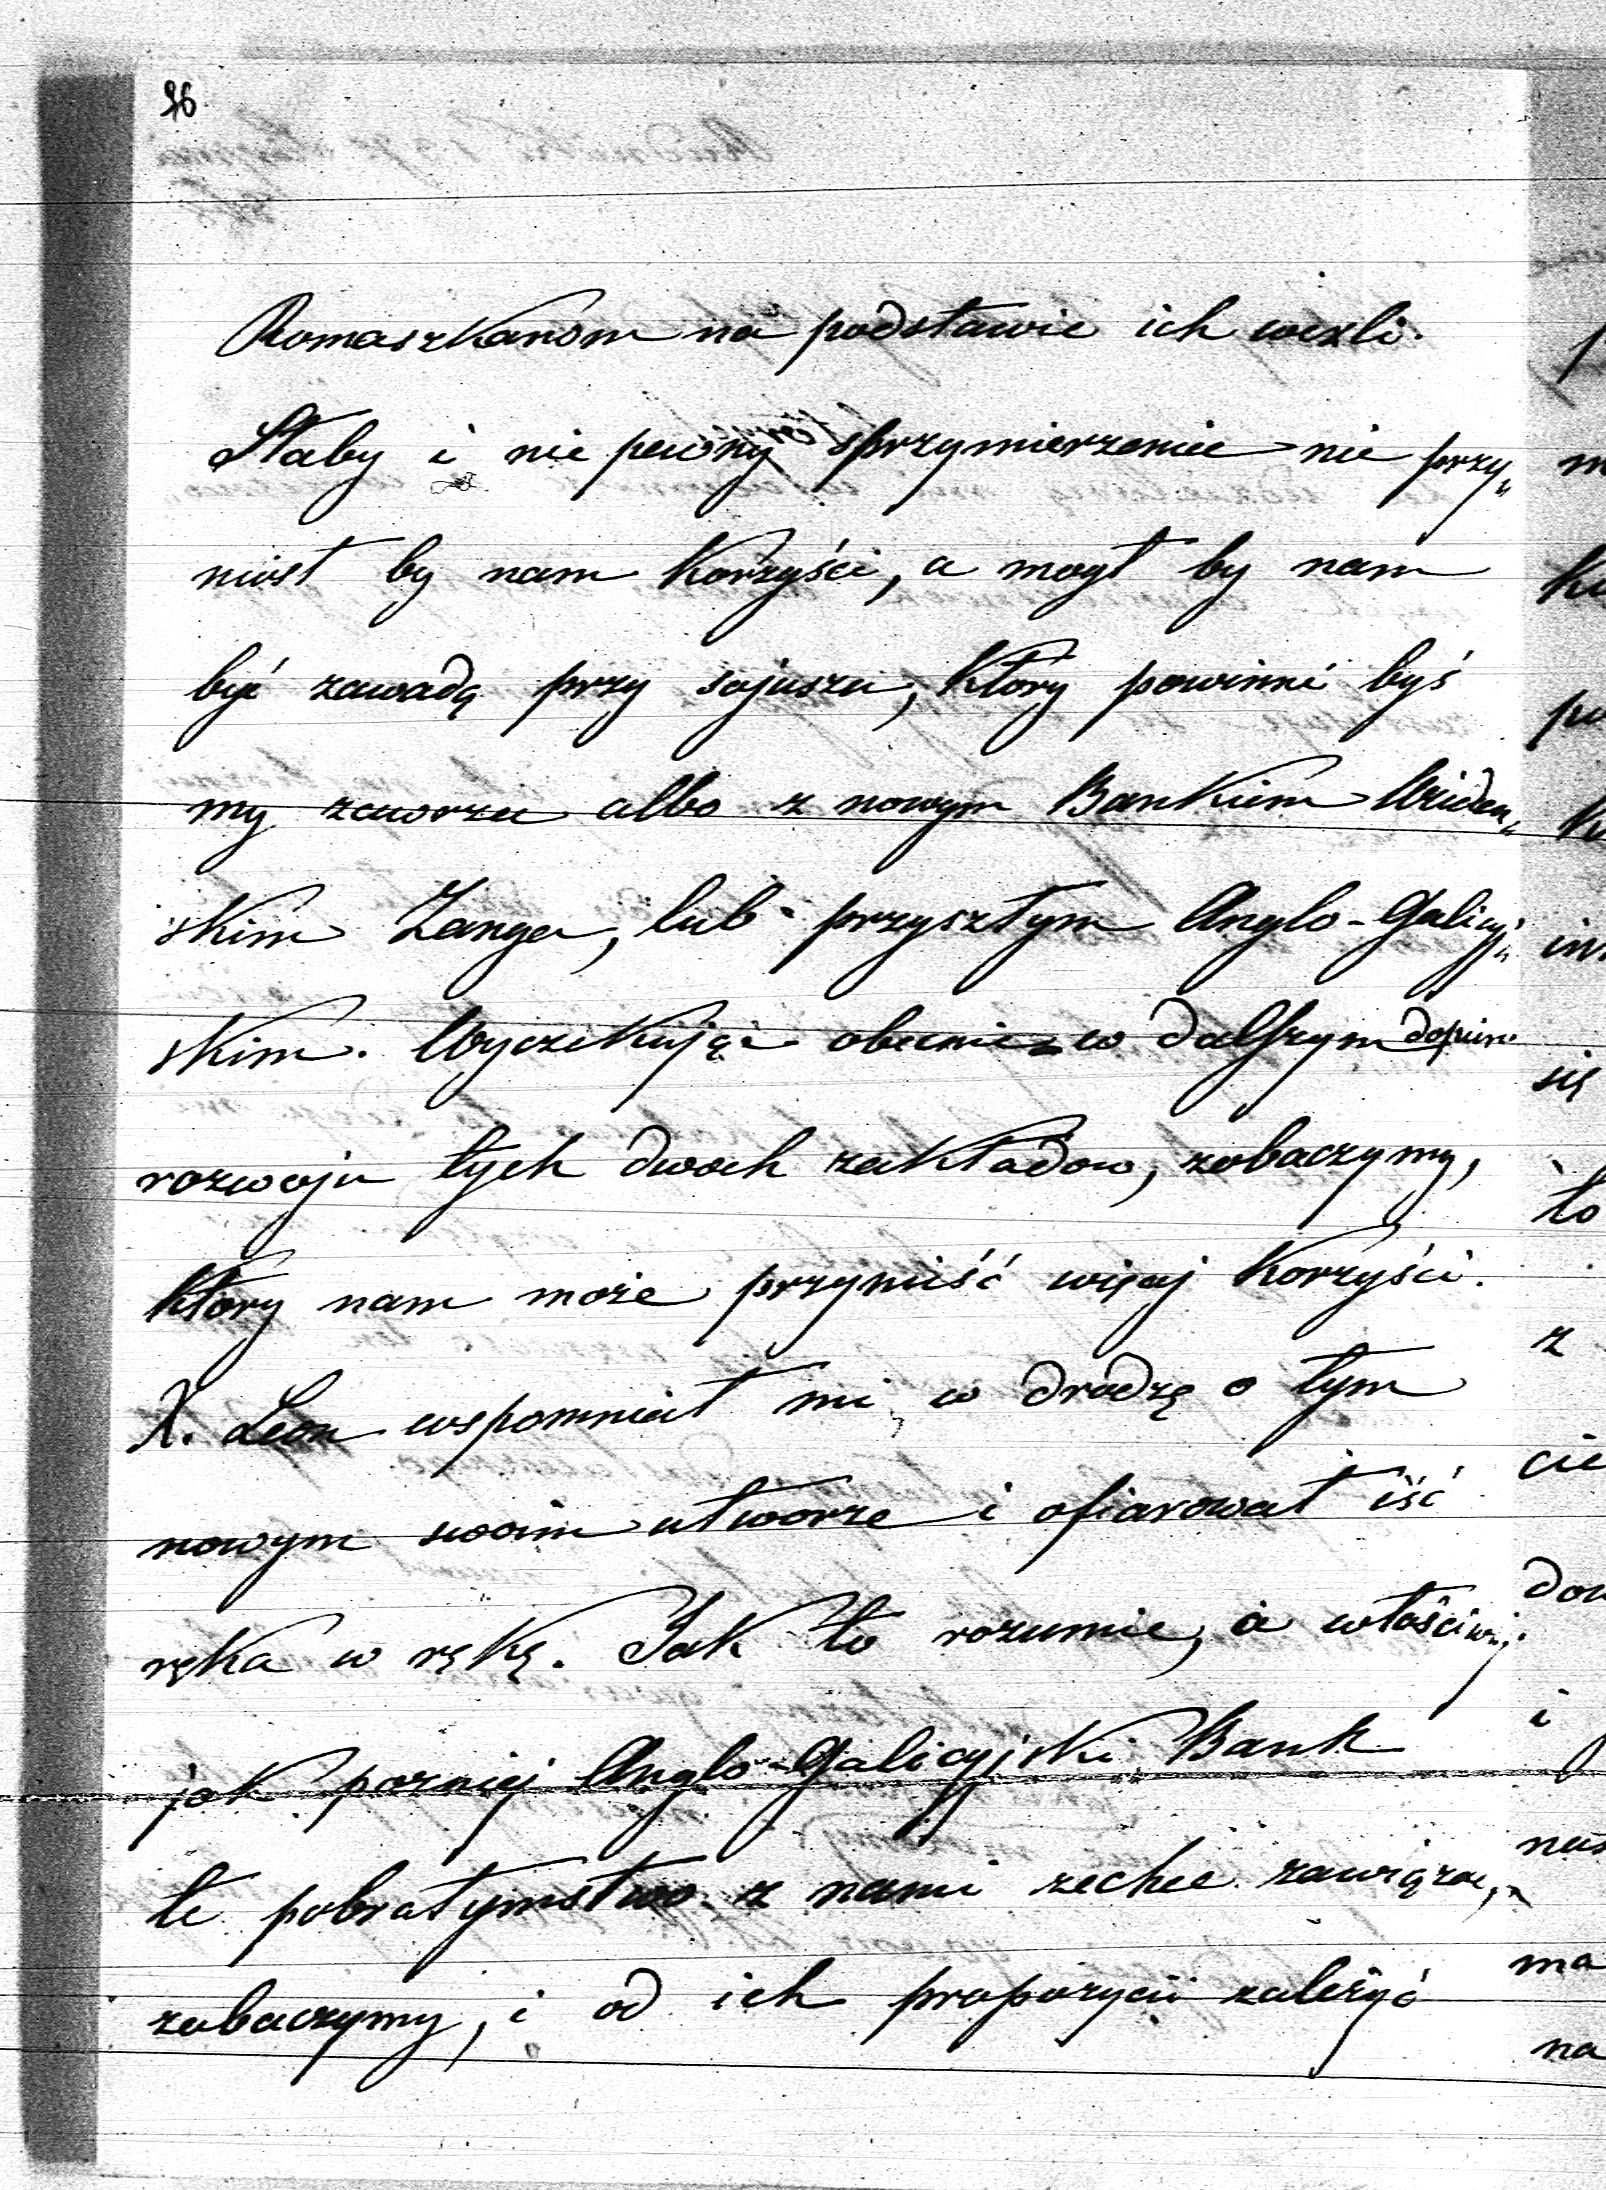 96
Romaszkanom na podstawie ich wexli.
Słaby i nie pewny sprzymierzeniec nie przy„
niosł by nam korzyści, a mogł by nam
być zawadą przy sojuszu, który powinni byś
my zaworzu albo z nowym Bankiem Wiedeń„
skim Langa, lub przyszłym Anglo-Galicyj„
skim. Wyczekując obecnie w dalszym dopiero
rozwoju tych dwoch zakładow, zobaczymy,
który nam może przynieść więcej korzyści.
X. Leon wspomniał mi w drodzę o tym
nowym swoim utworze i ofiarował iść
ręka w rękę. Jak to rozumie, a właściwie,
jak pozniej Anglo-Galicyjski Bank
te pobratymstwo z nami zechce zawiązac,
zobaczymy, i od ich propozycii zależyć